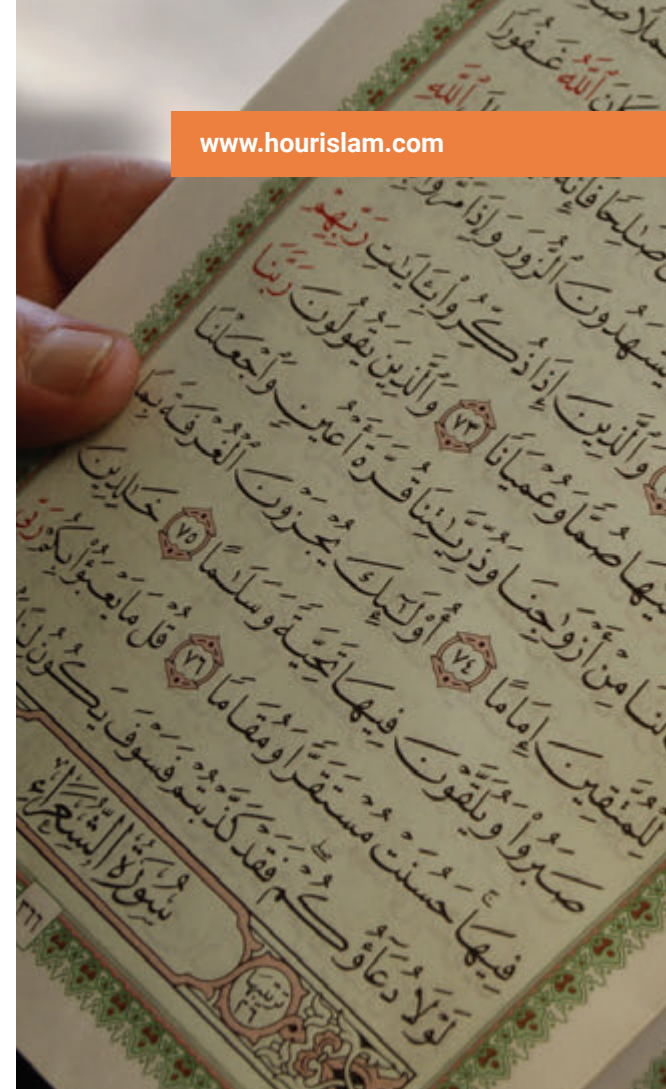 www.hourislam.com
ٱللَّهُ غَفُورًا
ٱللَّهِ
صَٰلِحًا فَإِنَّهُۥ
يَشْهَدُونَ ٱلزُّورَ وَإِذَا مَرُّوا۟
وَٱلَّذِينَ إِذَا ذُكِّرُوا۟ بِـَٔايَٰتِ رَبِّهِمْ
صُمًّا وَعُمْيَانًا ٧٣ وَٱلَّذِينَ يَقُولُونَ رَبَّنَا
لَنَا مِنْ أَزْوَٰجِنَا وَذُرِّيَّٰتِنَا قُرَّةَ أَعْيُنٍ وَٱجْعَلْنَا
لِلْمُتَّقِينَ إِمَامًا ٧٤ أُو۟لَٰٓئِكَ يُجْزَوْنَ ٱلْغُرْفَةَ بِمَا
صَبَرُوا۟ وَيُلَقَّوْنَ فِيهَا تَحِيَّةً وَسَلَٰمًا ٧٥ خَٰلِدِينَ
فِيهَا حَسُنَتْ مُسْتَقَرًّا وَمُقَامًا ٧٦ قُلْ مَا يَعْبَؤُا۟ بِكُمْ رَبِّى
لَوْلَا دُعَآؤُكُمْ فَقَدْ كَذَّبْتُمْ فَسَوْفَ يَكُونُ
سُورَةُ الشُّعَرَاءِ
ترتيبها
٢٦
٣٦٦